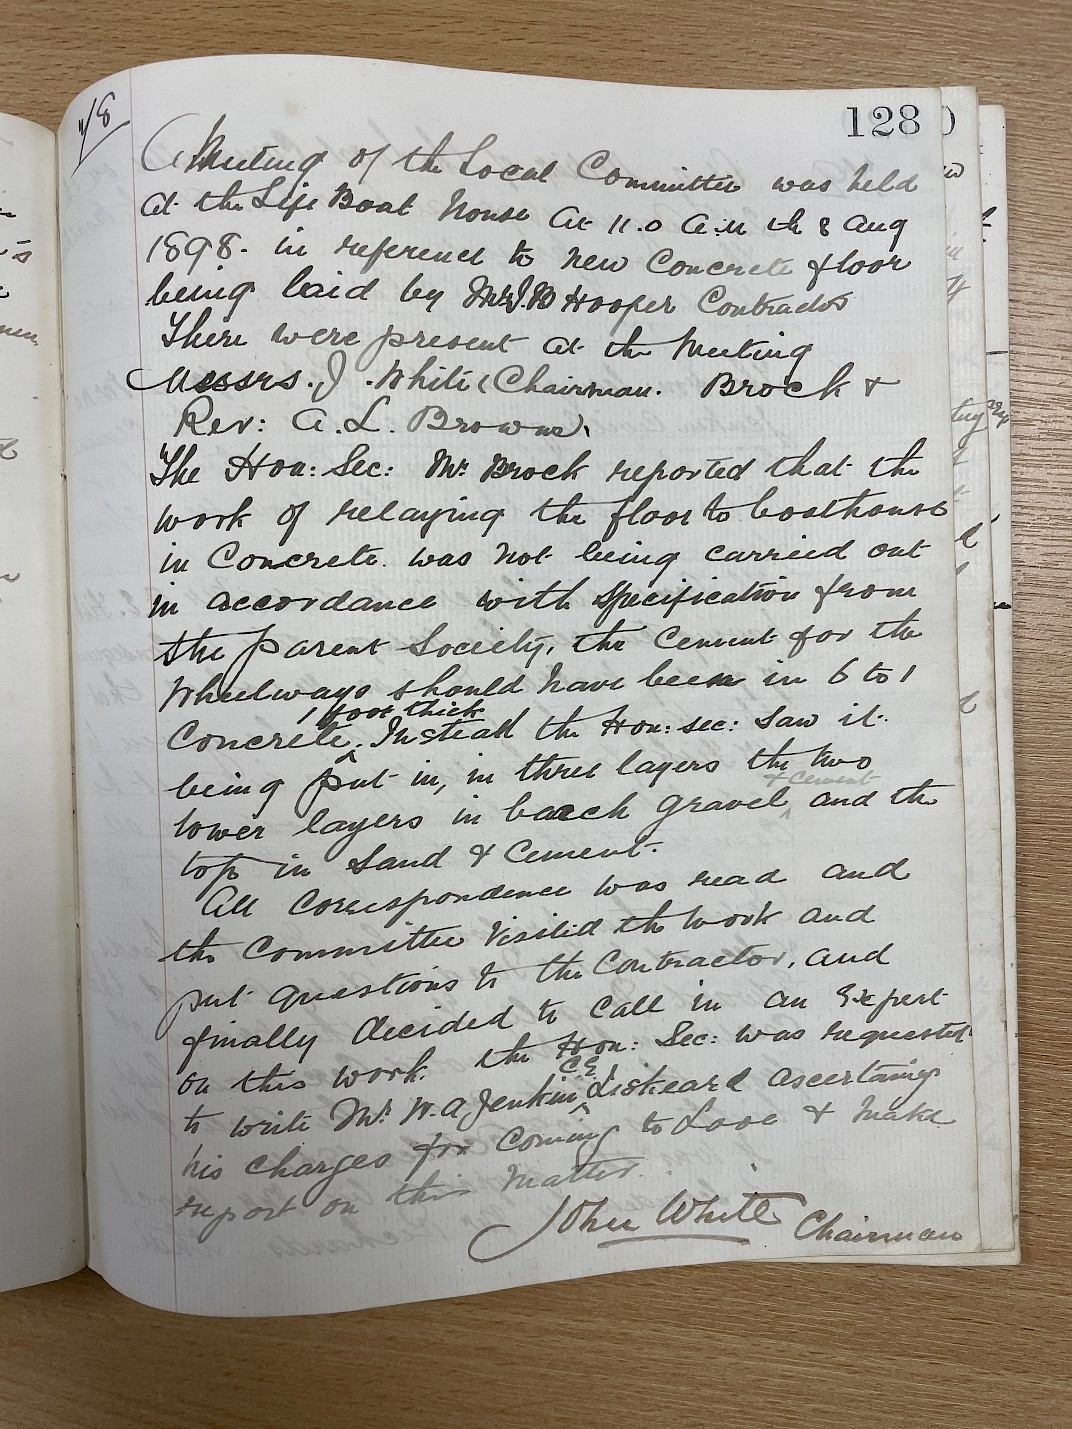 128
A Meeting of the Local Committee was held
at the Life Boat house at 11.0 a.m th 8 Aug
1898. in reference to new Concrete floor
being laid by Mr J. Hooper Contractor
There were present at the Meeting
Messrs. J. White (Chairman. Brock &
Rev: A. L. Browne).
The Hon: Sec: Mr. Brock reported that the
work of relaying the floor to boathouse
in Concrete. was not being carried out
in accordance with Specification from
the parent Society, the Cement for the
Wheelways should have been in 6 to 1
1 foot thick
Concrete. Instead the Hon: Sec: saw it
being put in, in three layers the two
& Cement
lower layers in beach gravel, and the
top in Sand & Cement.
All Correspondence was read and
the Committee Visited the work and
put questions to the Contractor, and
finally decided to call in an Expert
on this work. the Hon: Sec: was requested
C.E.
to write Mr. W. A Jenkin Liskeard ascertaing
his charges for coming to Looe & make
report on this matter.
John White Chairman